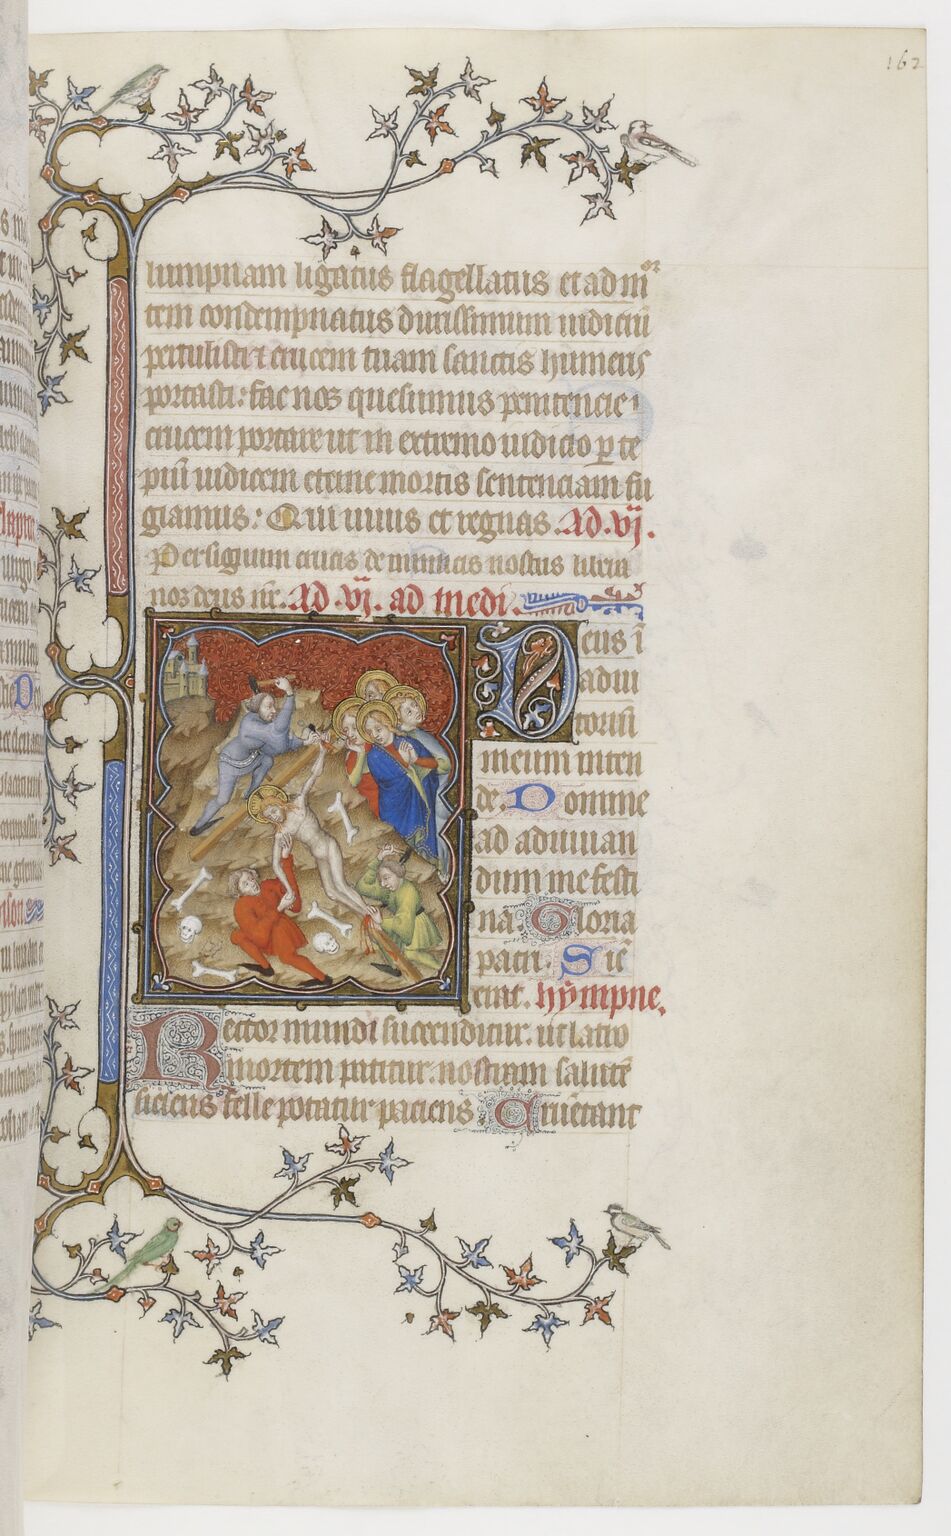 162
lumpnam ligatus flagellatus et ad mor
tem condempnatus durissimum iudiciū
pertulisti et crucem tuam sanctis humeris
portasti: fac nos quesumus penitencie
crucem portare ut in extremo iudicio ꝑ te
piū iudicem eterne mortis sentenciam fu
giamus: Qui uiuis et regnas. Ad .vj.
Per signum crucis de inimicis nostris libera
nos deus nr̄. Ad .vj. ad medi.
Deus ī
adiu
toriū
meum inten
de. Domine
ad adiuuan
dum me festi
na. Gloria
patri. Sic̄
erat. hympne.
Rector mundi succenditur. ut latro
mortem patitur. nostram salutē
siciens felle potatur paciens. Cruētant